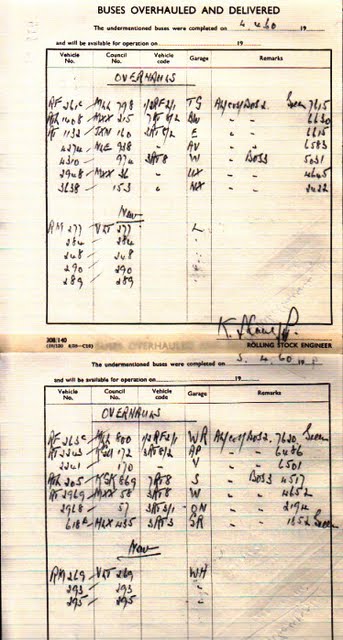 BUSES OVERHAULED AND DELIVERED
The undermentioned buses were completed on 4.4.60 19
and will be available for operation on 19
Vehicle No. Council No. Vehicle code Garage Remarks
OVERHAULS
RF 261 MLL 798 1/2RF2/1 TG 7615
MXX 215 BW 6630
RT 1132 160 3RT8/2 E 6615
4274 NLE 938 " AV 6583
4310 " 974 3RT8 W " " BOS3 5031
2948 MXX 36 " UX " " 4645
3638 " 153 " NX " " 2422
New
RM 277 VLT 277 L
284 284 "
248 248 "
290 290 "
289 289 "
ROLLING STOCK ENGINEER
308/140
BUSES OVERHAULED AND
The undermentioned buses were completed on 5.4.60 19
and will be available for operation on 19
Vehicle No. Council No. Vehicle code Garage Remarks
OVERHAULS
RF 263 MLL 800 1/2RF2/1 WR 7620
RT 2243 KGU 172 3RT8/2 AP " " 6486
2241 170 " V " " 6501
205 KGK 869 7RT8 S " BOS3 4517
RT 2969 MXX 58 3RT8 W " " 4652
2968 57 3RT3/1 ON " " 2194
618 HLX 435 3RT3 SR " " 1852
New
RM 269 VLT 269 WH
293 293 "
295 295 "